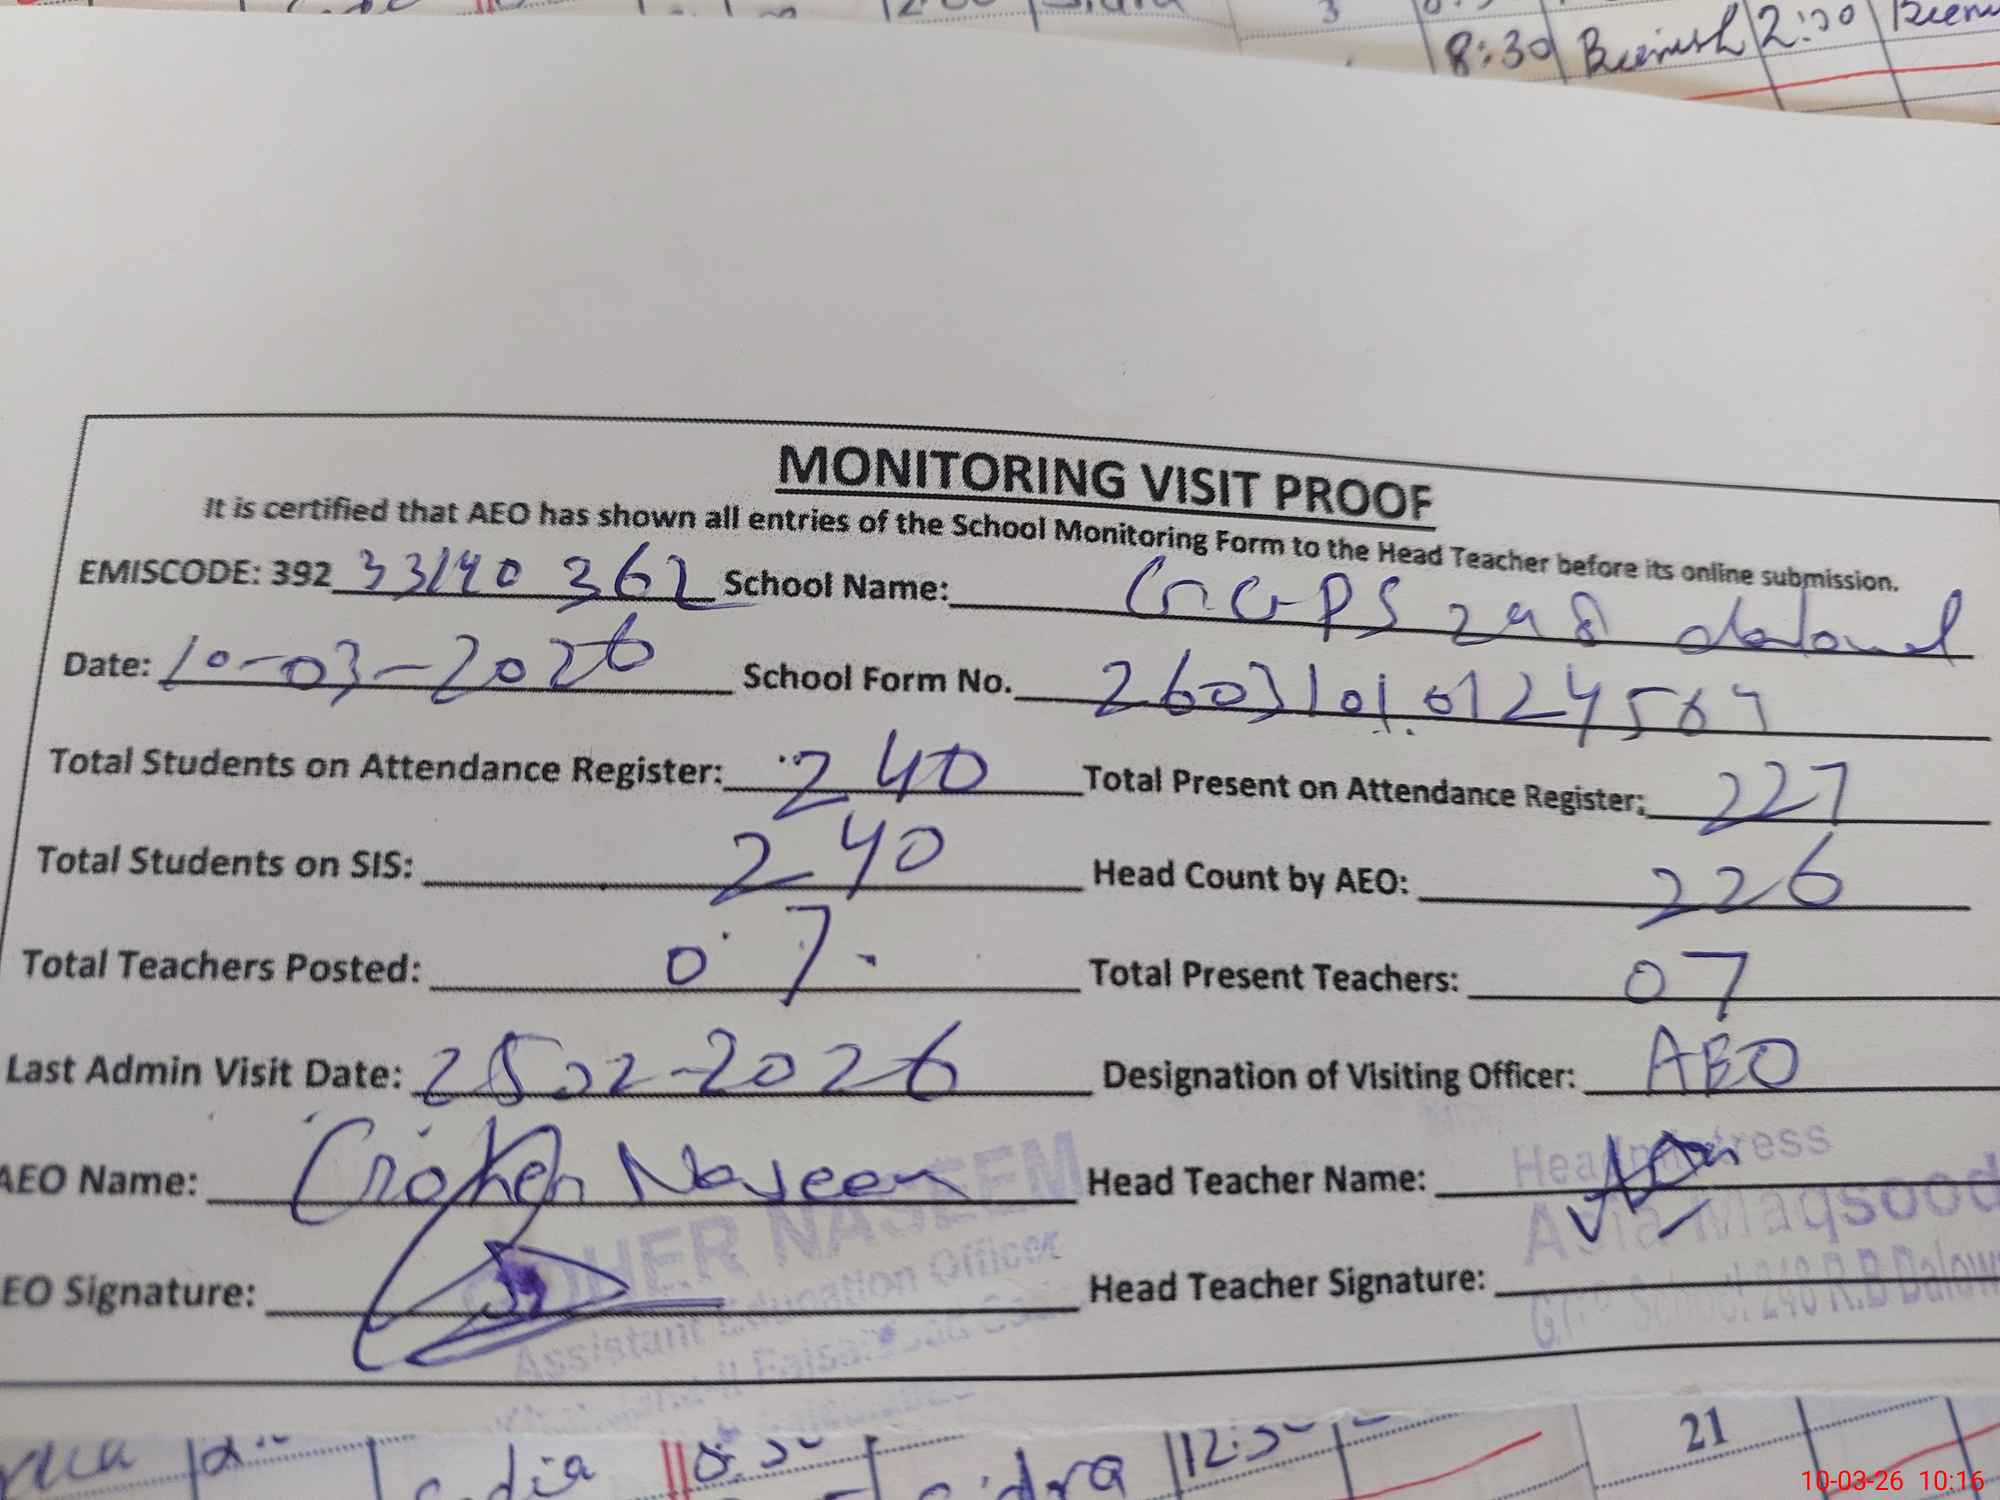 8:30 Beenish 2:00
MONITORING VISIT PROOF
It is certified that AEO has shown all entries of the School Monitoring Form to the Head Teacher before its online submission.
EMISCODE: 392 33140 362 School Name: GGPS 248
Date: 10-03-2026 School Form No.
Total Students on Attendance Register: 240 Total Present on Attendance Register: 227
Total Students on SIS: 240 Head Count by AEO: 226
Total Teachers Posted: 07 Total Present Teachers: 07
Last Admin Visit Date: 25 02-2026 Designation of Visiting Officer: AEO
AEO Name: Goher Naseem Head Teacher Name:
Headmistress
Asia Maqsood
School 248 R.B
EO Signature: Head Teacher Signature:
NASEEM
Assistant Education Officer
21
12:30
10-03-26 10:16